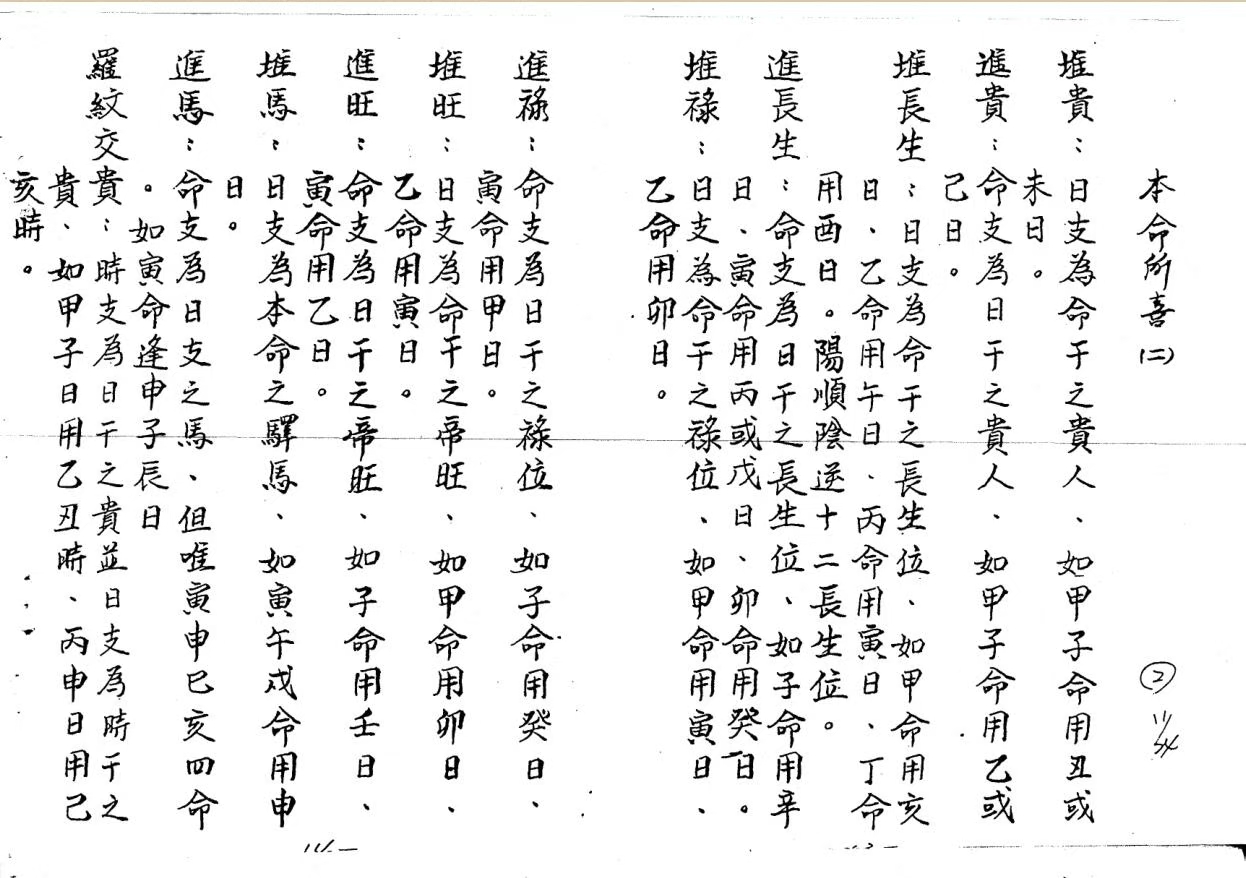 本命所喜(二)
② 11/24
堆貴：日支為命干之貴人、如甲子命用丑或
未日。
進貴：命支為日干之貴人、如甲子命用乙或
己日。
堆長生：日支為命干之長生位、如甲命用亥
日、乙命用午日、丙命用寅日、丁命
用酉日。陽順陰逆十二長生位。
進長生：命支為日干之長生位、如子命用辛
日、寅命用丙或戊日、卯命用癸日。
堆祿：日支為命干之祿位、如甲命用寅日、
乙命用卯日。
進祿：命支為日干之祿位、如子命用癸日、
寅命用甲日。
堆旺：日支為命干之帝旺、如甲命用卯日、
乙命用寅日。
進旺：命支為日干之帝旺、如子命用壬日、
寅命用乙日。
堆馬：日支為本命之驛馬、如寅午戌命用申
日。
進馬：命支為日支之馬、但唯寅申巳亥四命
。如寅命逢申子辰日
羅紋交貴：時支為日干之貴並日支為時干之
貴、如甲子日用乙丑時、丙申日用己
亥時。